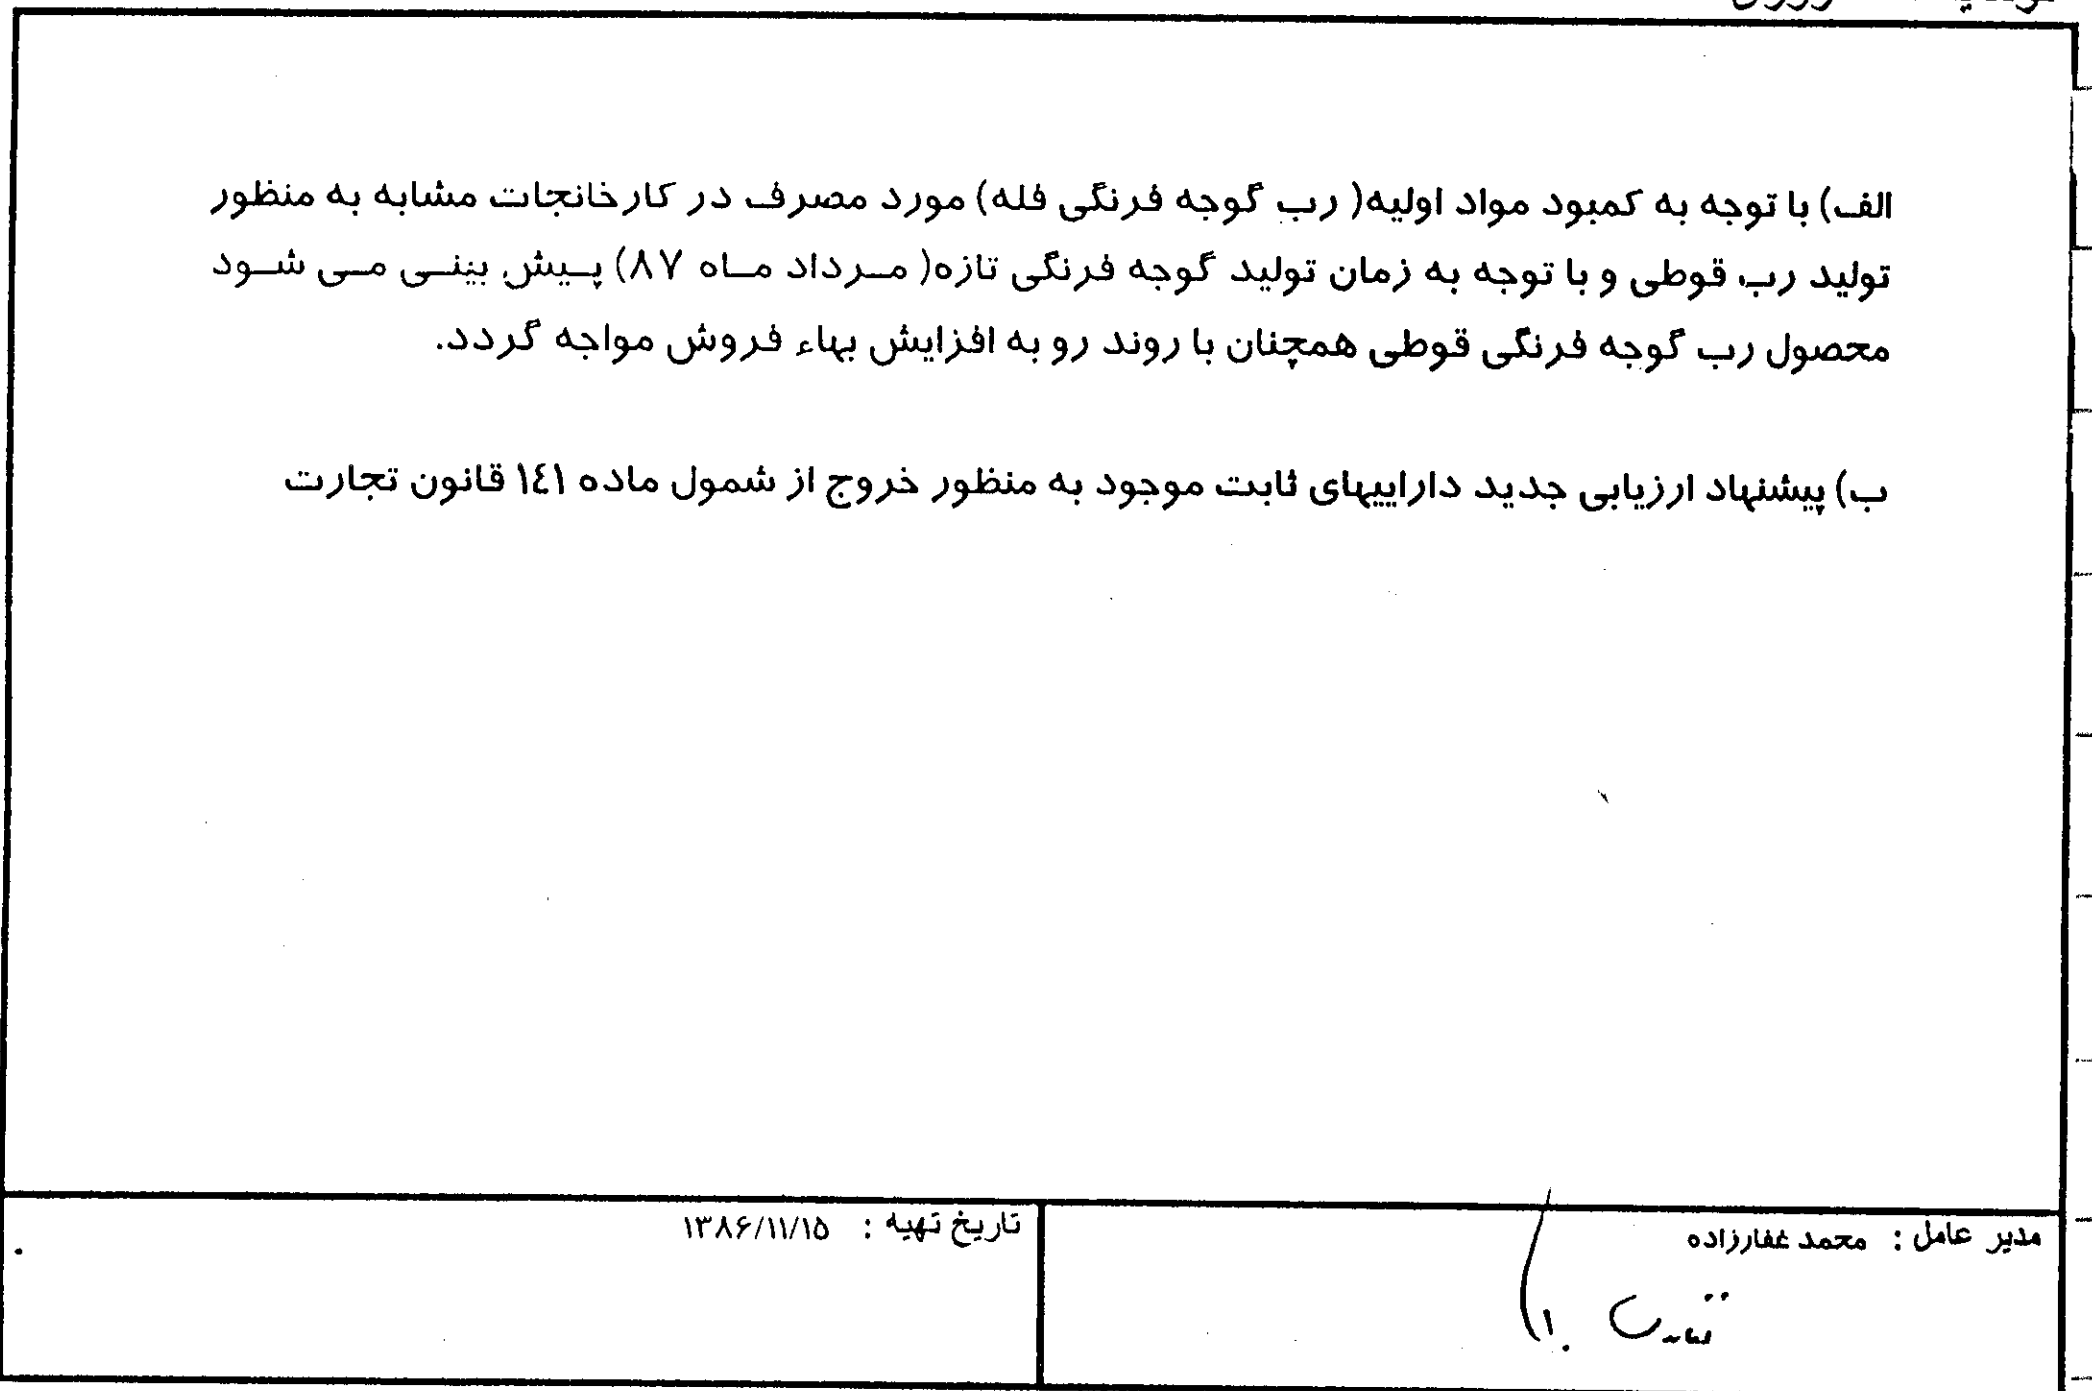 الف) با توجه به کمبود مواد اولیه( رب گوجه فرنگی فله) مورد مصرف در کارخانجات مشابه به منظور
تولید رب قوطی و با توجه به زمان تولید گوجه فرنگی تازه( مرداد ماه ۸۷) پیش بینی می شود
محصول رب گوجه فرنگی قوطی همچنان با روند رو به افزایش بهاء فروش مواجه گردد.
ب) پیشنهاد ارزیابی جدید داراییهای ثابت موجود به منظور خروج از شمول ماده ۱٤۱ قانون تجارت
مدیر عامل : محمد غفارزاده
تاریخ تهیه : ۱۳۸۶/۱۱/۱۵